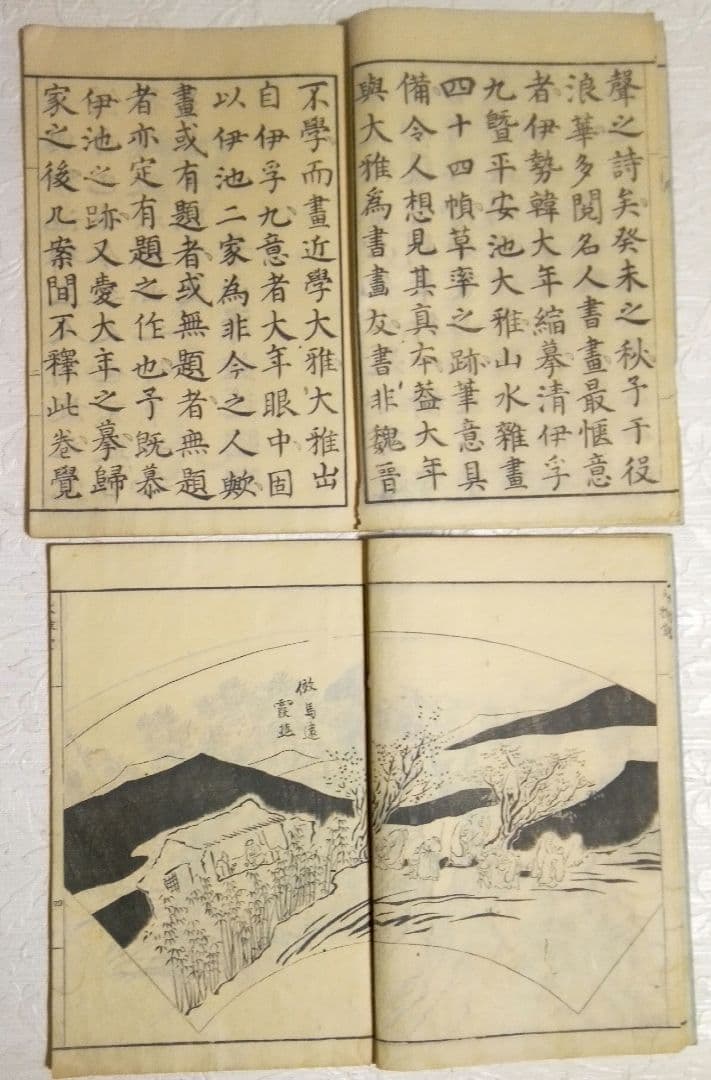 聲之詩矣癸未之秋予于役
浪華多閱名人書畫最愜意
者伊勢韓大年縮摹清伊孚
九暨平安池大雅山水雜畫
四十四幀草率之跡筆意具
備令人想見其真本葢大年
與大雅為書畫友書非魏晉
不學而畫近學大雅大雅出
自伊孚九意者大年眼中固
以伊池二家為非今之人歟
畫或有題者或無題者無題
者亦定有題之作也予既慕
伊池之跡又愛大年之摹歸
家之後几案間不釋此卷覺
倣馬遠
霞樵